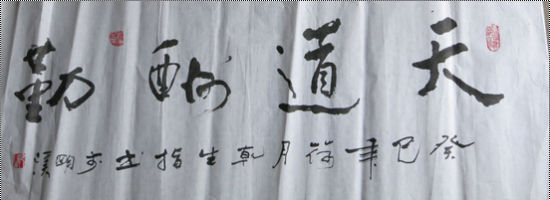 天道酬勤
癸巳年荷月乾生指书于明溪